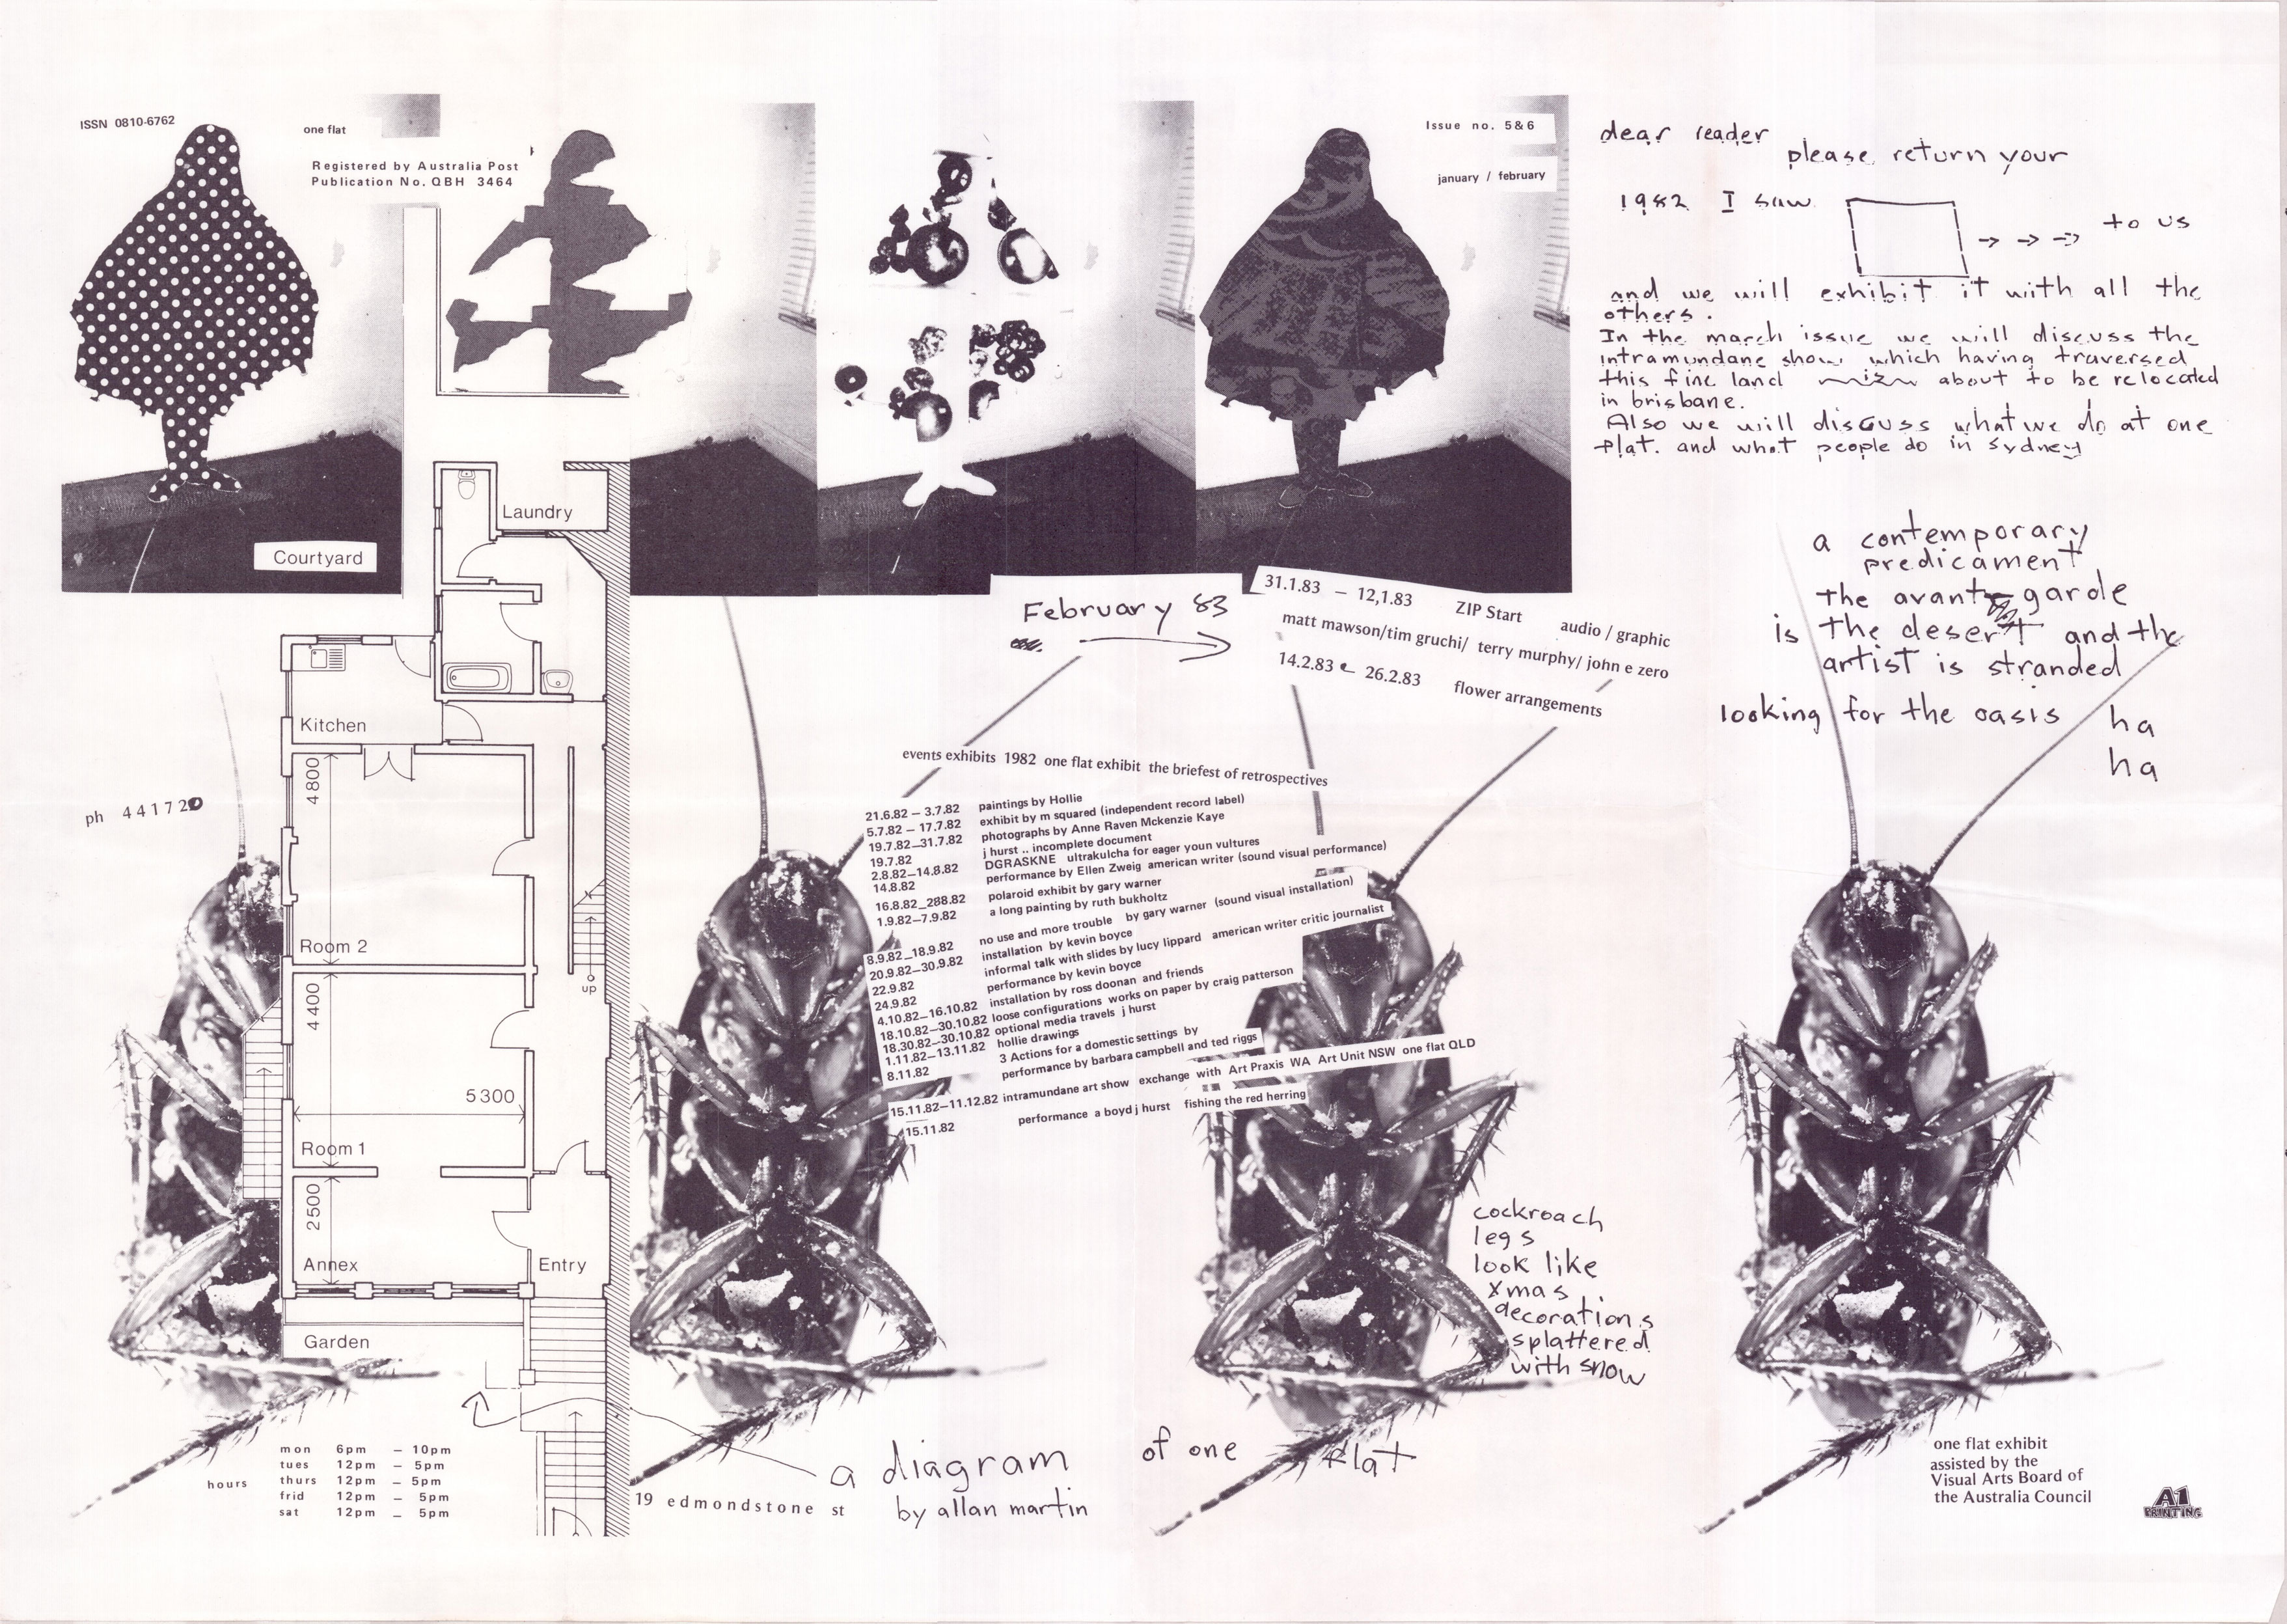 ISSN 0810-6762
one flat
Registered by Australia Post
Publication No. QBH 3464
Issue no. 5&6
january / february
dear reader
please return your
1982 I saw
to us
and we will exhibit it with all the
others.
In the march issue we will discuss the
intramundane show which having traversed
this fine land is about to be relocated
in brisbane.
Also we will discuss what we do at one
flat. and what people do in sydney
a contemporary
predicament
the avant garde
is the desert and the
artist is stranded
looking for the oasis ha
ha
Courtyard
Laundry
Kitchen
4800
Room 2
up
4400
5300
Room 1
2500
Annex
Entry
Garden
ph 441720
February 83
31.1.83 – 12,1.83 ZIP Start audio / graphic
matt mawson/tim gruchi/ terry murphy/ john e zero
14.2.83 – 26.2.83 flower arrangements
events exhibits 1982 one flat exhibit the briefest of retrospectives
21.6.82 – 3.7.82 paintings by Hollie
5.7.82 – 17.7.82 exhibit by m squared (independent record label)
19.7.82–31.7.82 photographs by Anne Raven Mckenzie Kaye
19.7.82 j hurst .. incomplete document
2.8.82–14.8.82 DGRASKNE ultrakulcha for eager youn vultures
14.8.82 performance by Ellen Zweig american writer (sound visual performance)
16.8.82_288.82 polaroid exhibit by gary warner
1.9.82–7.9.82 a long painting by ruth bukholtz
8.9.82_18.9.82 no use and more trouble by gary warner (sound visual installation)
20.9.82–30.9.82 installation by kevin boyce
22.9.82 informal talk with slides by lucy lippard american writer critic journalist
24.9.82 performance by kevin boyce
4.10.82–16.10.82 installation by ross doonan and friends
18.10.82–30.10.82 loose configurations works on paper by craig patterson
18.30.82–30.10.82 optional media travels j hurst
1.11.82–13.11.82 hollie drawings
8.11.82 3 Actions for a domestic settings by
performance by barbara campbell and ted riggs
15.11.82–11.12.82 intramundane art show exchange with Art Praxis WA Art Unit NSW one flat QLD
15.11.82 performance a boyd j hurst fishing the red herring
cockroach
legs
look like
xmas
decorations
splattered
with snow
hours
mon 6pm – 10pm
tues 12pm – 5pm
thurs 12pm – 5pm
frid 12pm – 5pm
sat 12pm – 5pm
19 edmondstone st
a diagram of one flat
by allan martin
one flat exhibit
assisted by the
Visual Arts Board of
the Australia Council
A1
PRINTING